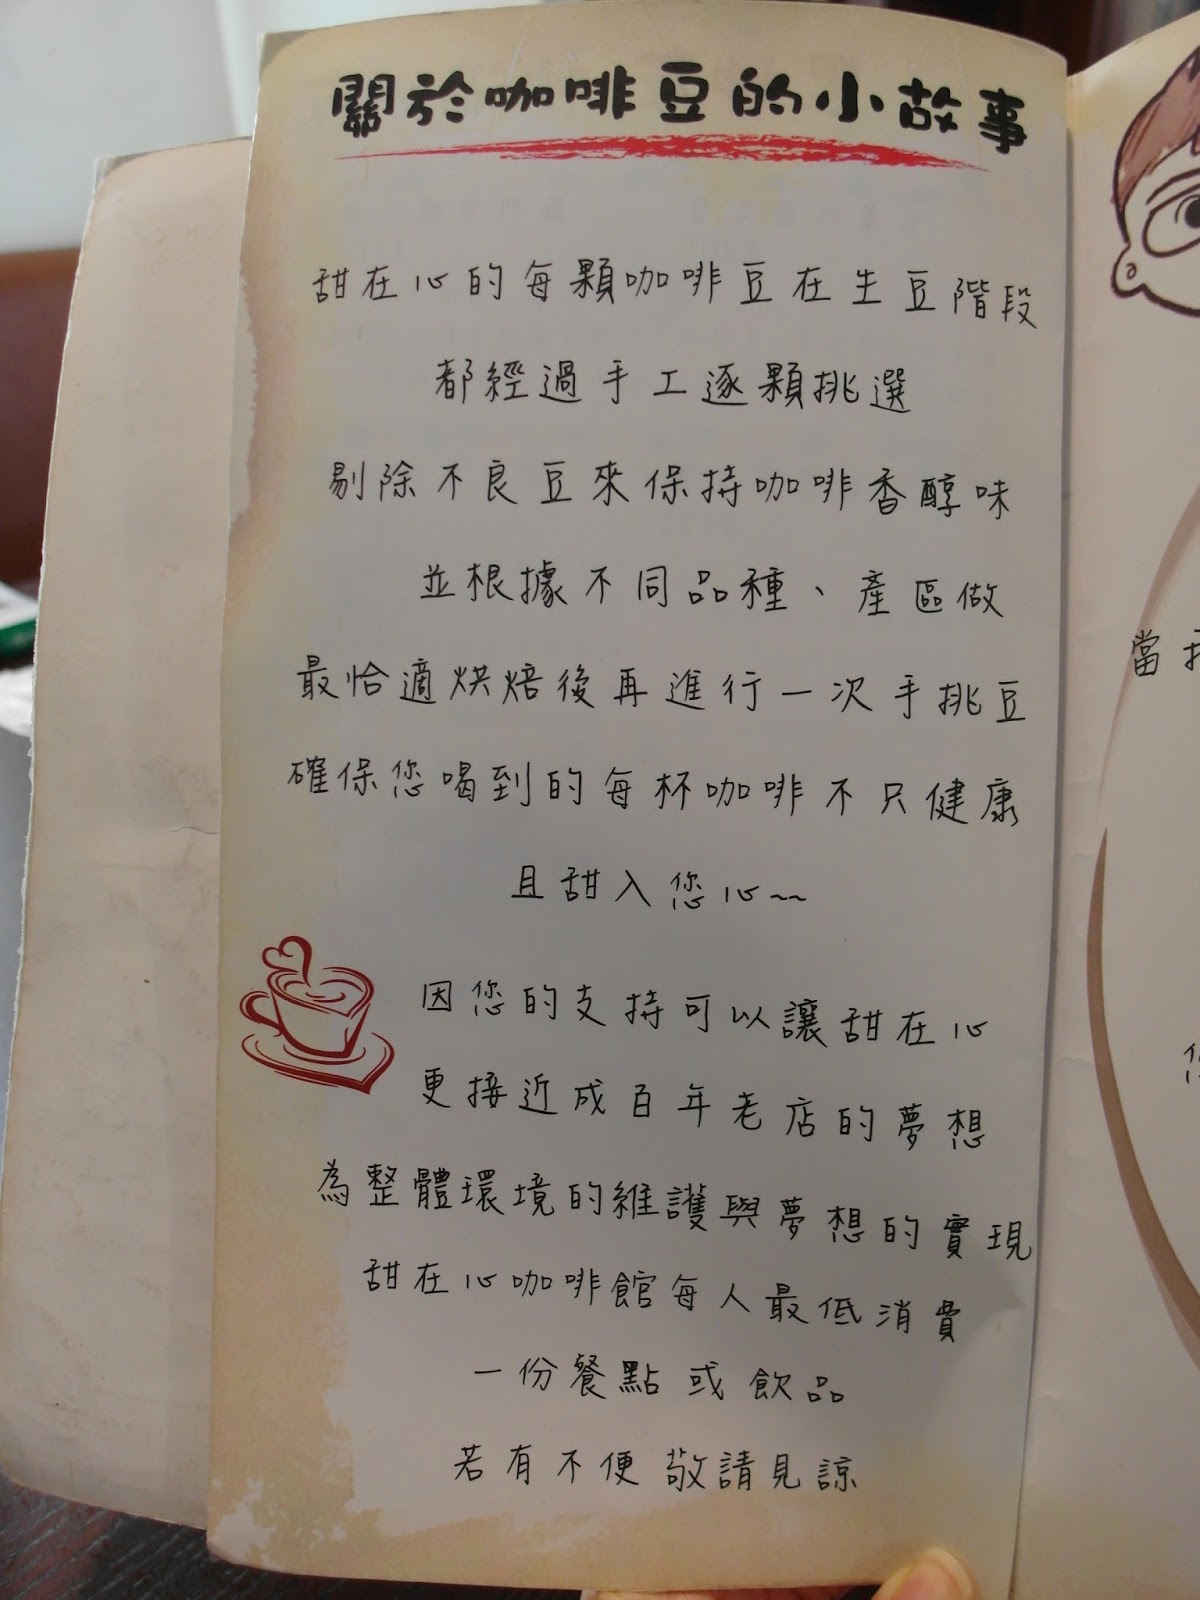 關於咖啡豆的小故事
甜在心的每顆咖啡豆在生豆階段
都經過手工逐顆挑選
剔除不良豆來保持咖啡香醇味
並根據不同品種、產區做
最恰適烘焙後再進行一次手挑豆
確保您喝到的每杯咖啡不只健康
且甜入您心~~
因您的支持可以讓甜在心
更接近成百年老店的夢想
為整體環境的維護與夢想的實現
甜在心咖啡館每人最低消費
一份餐點或飲品
若有不便敬請見諒
當